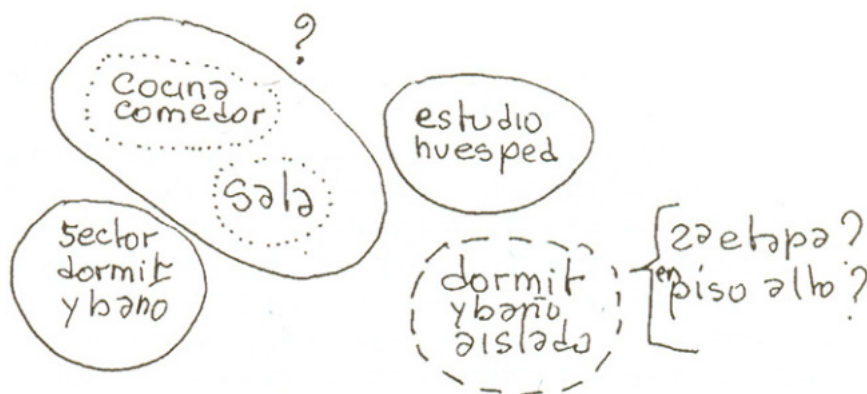 ?
cocina
comedor
sala
estudio
huesped
sector
dormit
y baño
dormit
y baño
aislado
2a etapa?
en piso alto?